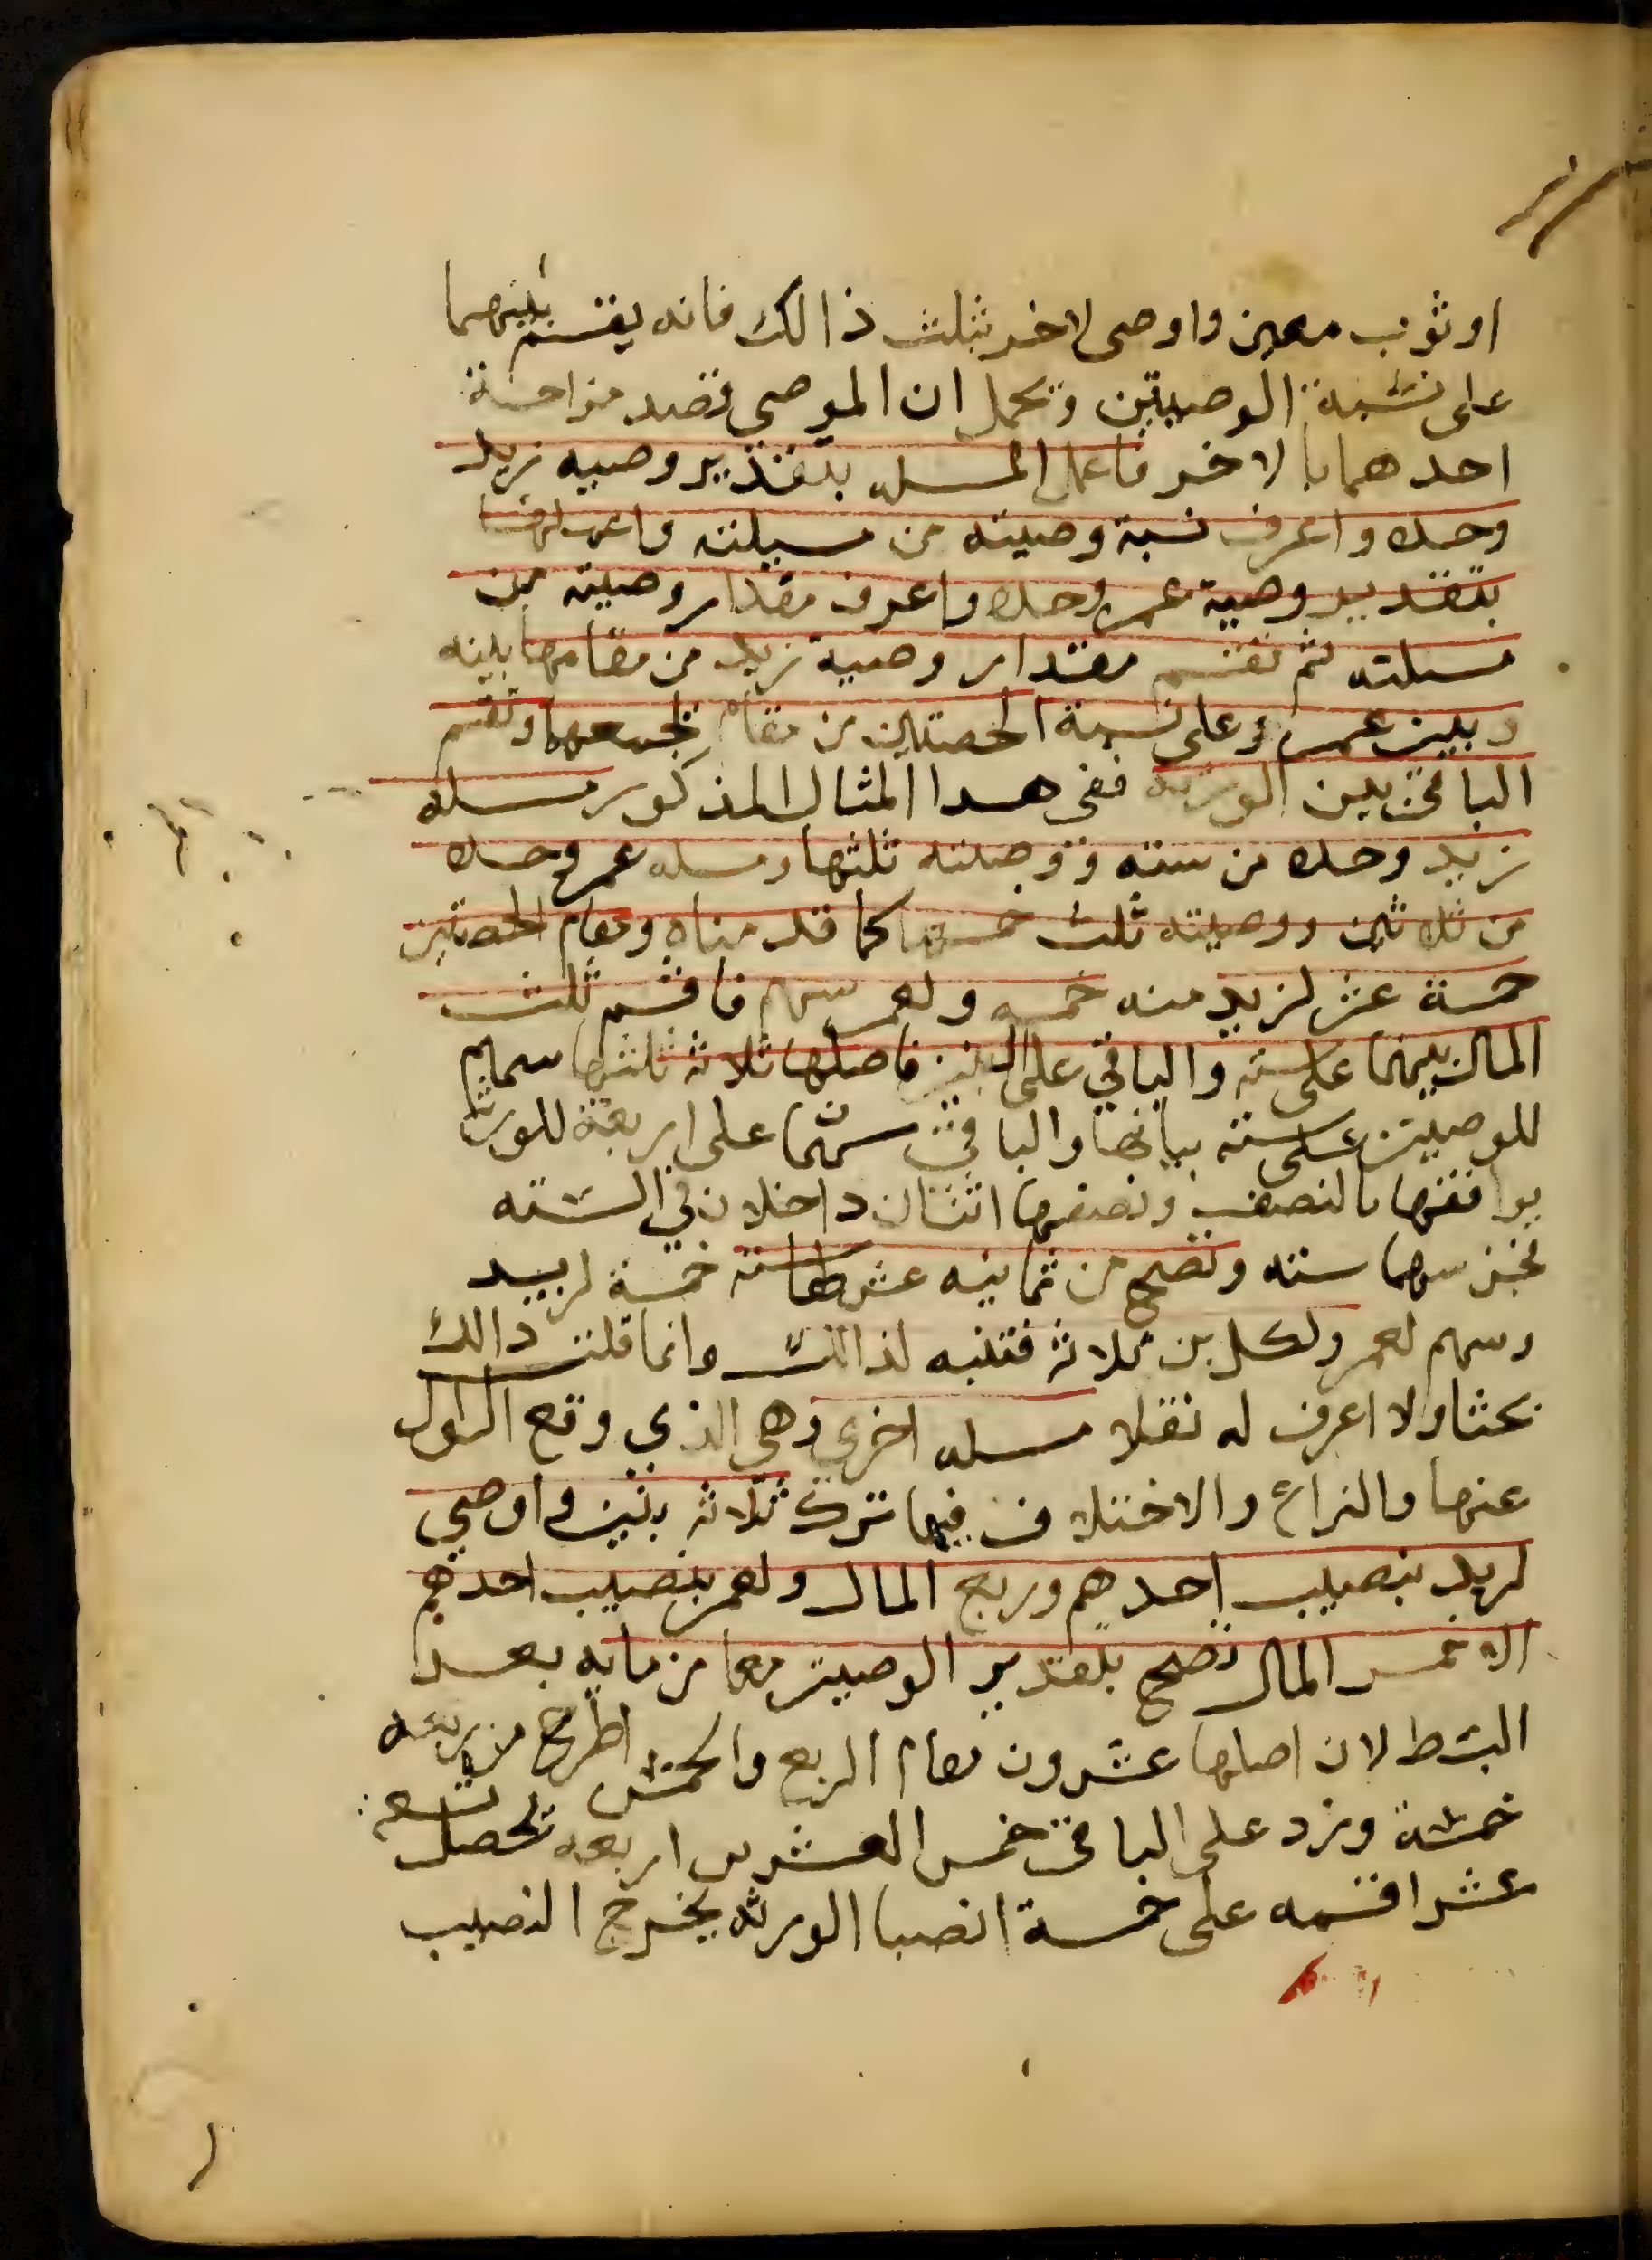 او ثوب معين واوصى لاخر بثلث ذالك فانه يقسم بينهما
على نسبة الوصيتين ويحمل ان الموصى قصد مزاحمة
احدهما بالاخر فاعمل المسله بتقدير وصيه زيد
وحده واعرف نسبة وصيته من مسيلته واعملها
بتقدير وصية عمر وحده واعرف مقدار وصيته من
مسلته ثم تقسم مقدار وصية زيد من مقامها بينه
وبين عمر وعلى نسبة الحصتين من مقام يجمعهما وتقسم
الباقي بين الورثه ففي هدا المثال المذكور مسله
زيد وحده من سته ووصيته ثلثها ومسله عمر وحده
من ثلاثين ووصيته ثلث خمسها كما قدمناه ومقام الحصتين
خمسة عشر لزيد منه خمسه ولعمر سهم فاقسم ثلث
المال بينهما على سته والباقي على البنين فاصلها ثلاثه ثلثها سهم
للوصيتين على سته يباينها والباقي سهمان على اربعة للورثه
يوافقها بالنصف ونصفها اثنان داخلان في السته
فجز سهما سته وتصح من ثمانيه عشر كما سته خمسة لزيد
وسهم لعمر ولكل بن ثلاثه فتنبه لذالك وانما قلت دالك
بحثا ولا اعرف له نقلا مسله اخرى وهي الذي وقع السوال
عنها والنزاع والاختلاف فيها ترك ثلاثه بنين واوصى
لزيد بنصيب احدهم وربع المال ولعمر بنصيب احدهم
الا خمس المال تصح بتقدير الوصيتين معا من مايه بعد
البسط لان اصلها عشرون مقام الربع والخمس اطرح من ربعه
خمسة وزد على الباقي خمس العشرين اربعه تحصل تسعه
عشر اقسمه على خمسة انصبا الورثه يخرج النصيب